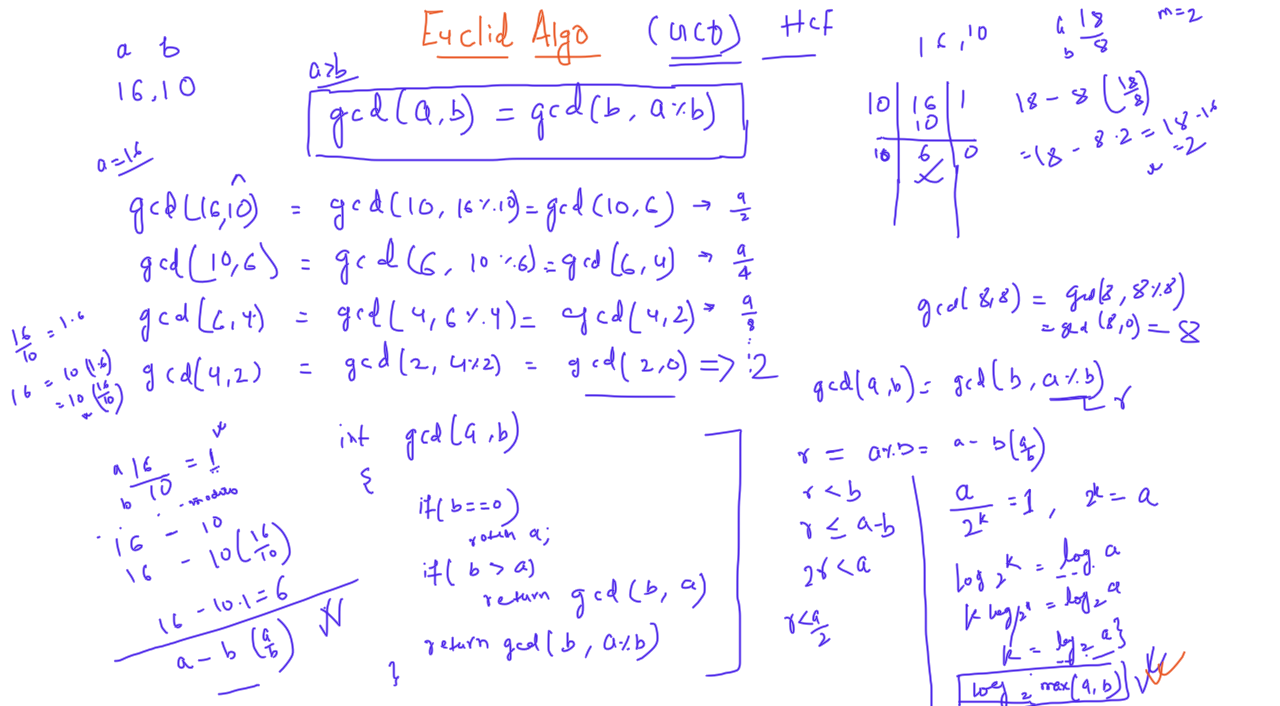 Euclid Algo (GCD) HCF
a b
16,10
a>b
gcd(a,b) = gcd(b, a%b)
a=16
gcd(16,10) = gcd(10, 16%10) = gcd(10,6) → a/2
gcd(10,6) = gcd(6, 10%6) = gcd(6,4) → a/4
gcd(6,4) = gcd(4, 6%4) = gcd(4,2) → a/8
gcd(4,2) = gcd(2, 4%2) = gcd(2,0) => 2
16/10 = 1.6
16 = 10(1.6)
= 10(16/10)
a 16
b 10 = 1
16 - 10
16 - 10(16/10)
16 - 10.1 = 6
a - b(a/b)
int gcd(a,b)
{
if(b==0)
return a;
if(b > a)
return gcd(b, a)
return gcd(b, a%b)
}
16,10
10 | 16 | 1
10
10 | 6 | 0
a 18
b 8
m=2
18 - 8(18/8)
=18 - 8.2 = 18-16
=2
gcd(8,8) = gcd(8, 8%8)
= gcd(8,0) = 8
gcd(a,b) = gcd(b, a%b)
r
r = a%b = a - b(a/b)
r < b
r ≤ a-b
2r < a
r < a/2
a/2^k = 1, 2^k = a
log 2^k = log a
k log_2 2 = log_2 a
k = log_2 a}
log_2 max(a,b)